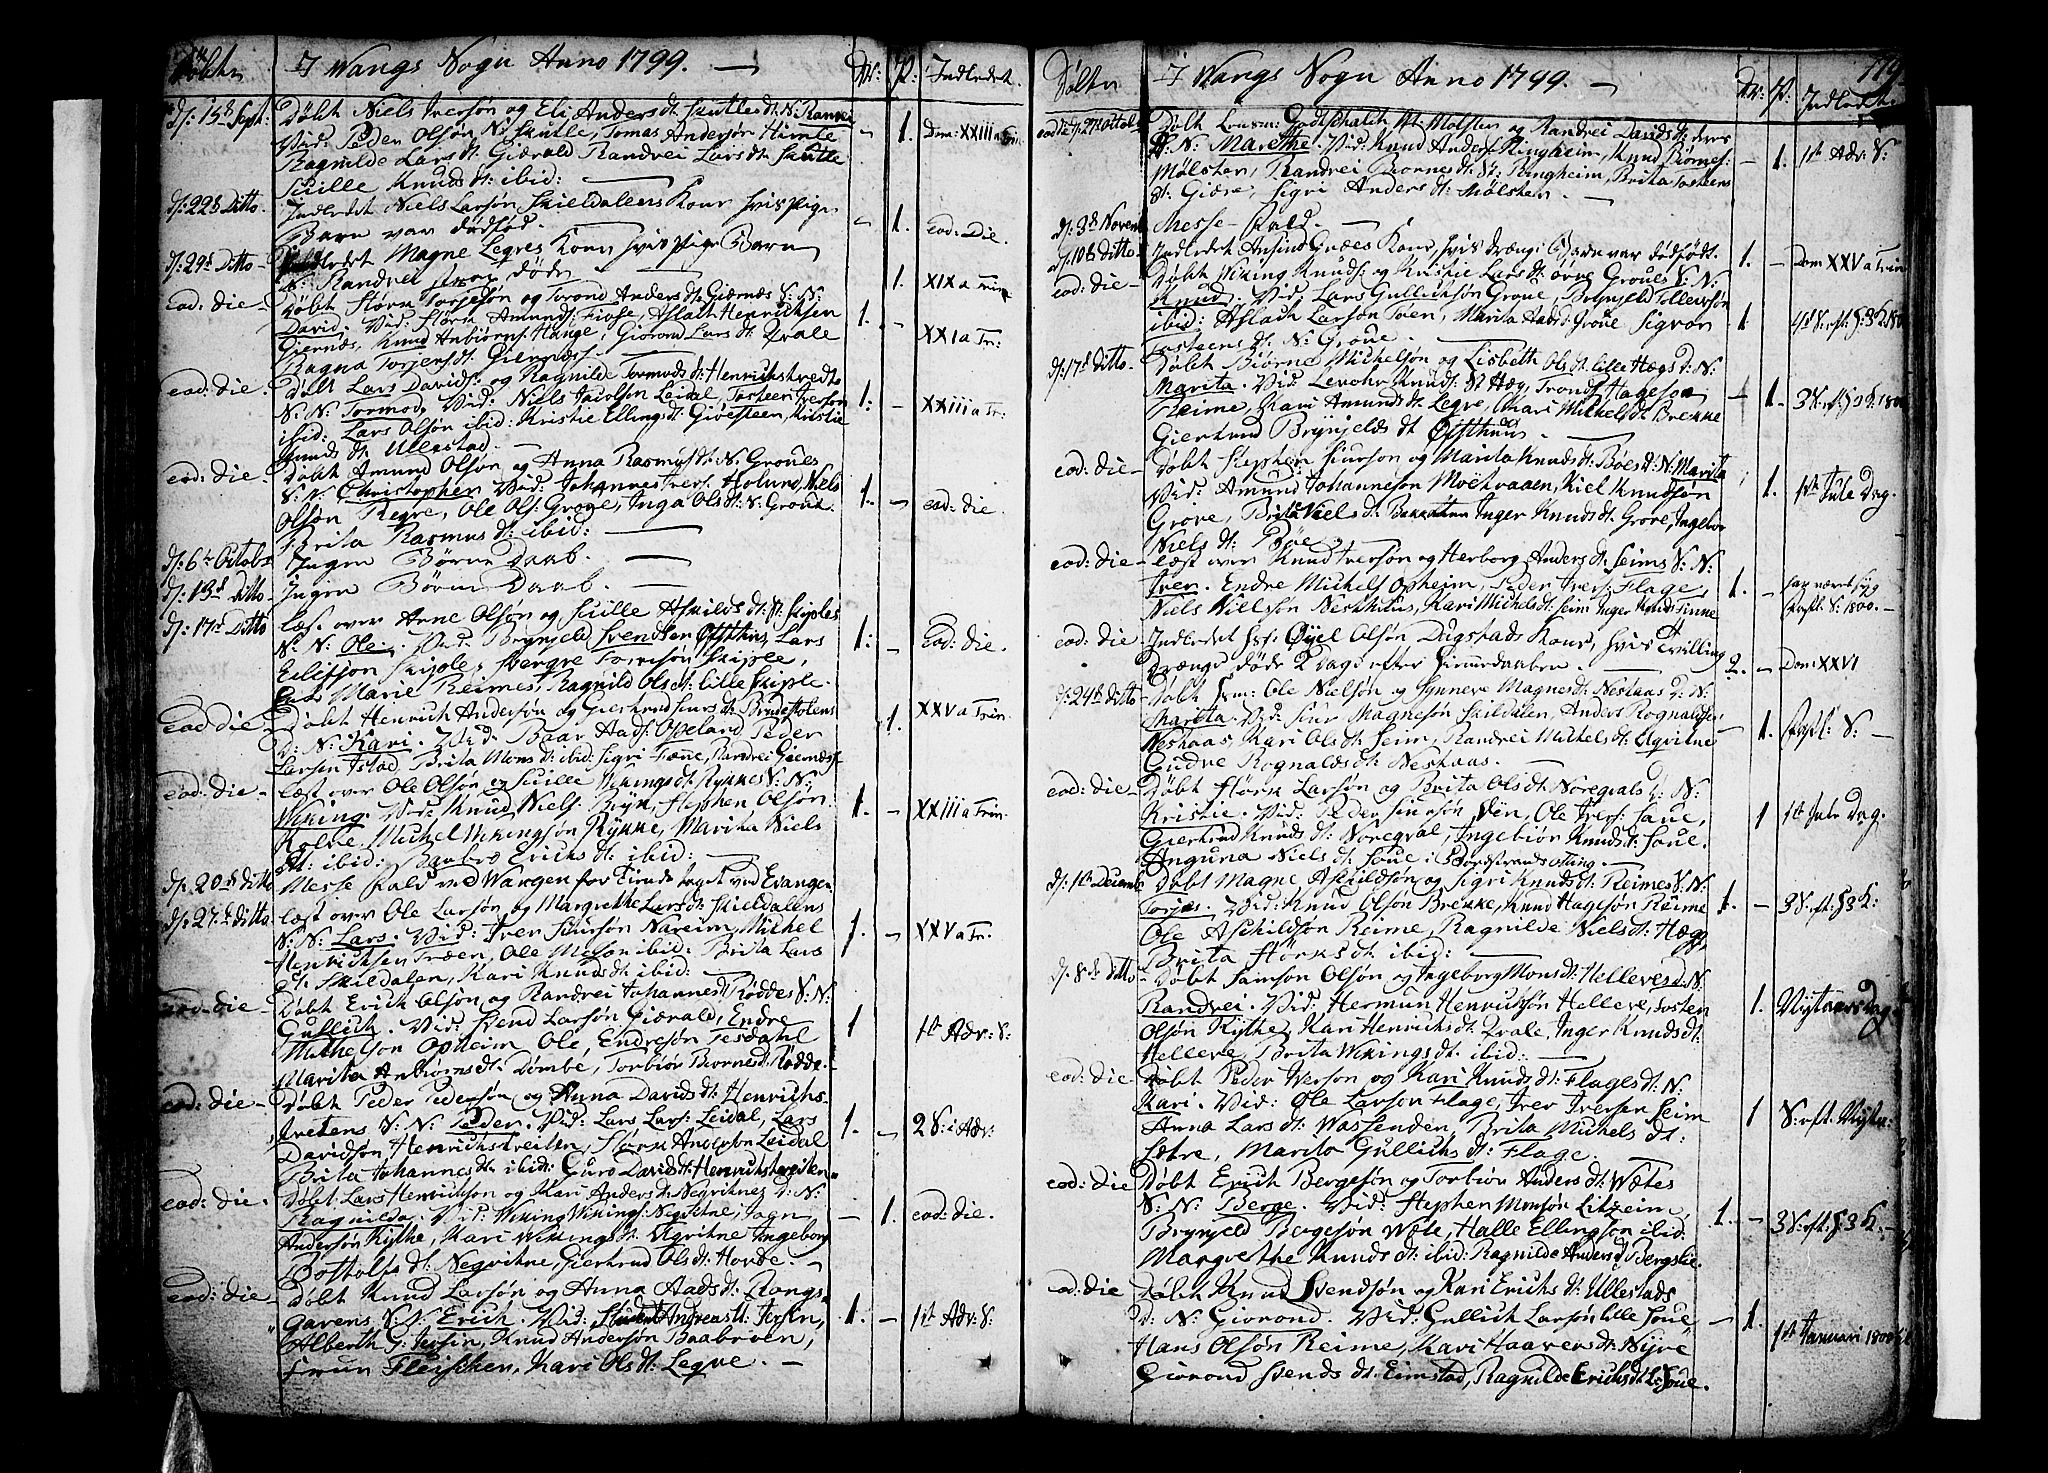 Døbte
I Wangs Sogn Anno 1799.
Dr: P: Indledet.
d: 15de Sept: Døbt Niels Iversøn og Eli Anders dt: Skutles dt: N: Randei
Vid: Peder Olsøn N: Skutle, Tomas Andersøn Himle
Ragnilde Lars dt: Giærald Randrei Lars dt: Skutle
Sitille Knuds dt: ibid:
1. Dom: XXIII a Trin.
d: 22d Ditto. Indledet Niels Larsøn Skieldalens Kone hvis Pige
Barn var dødfød.
1. eod: Die.
d: 29d Ditto Indledet Magne Legres Kone hvis Pige Barn
N: Randrei var døde
1. XIX a Trin
eod: die Døbt Størk Torjesøn og Torond Anders dt: Giernæs S: N:
David. Vid: Størk Amunds: Aslach Henrichsen
Giernæs, Knud Anbiørns: Hauge, Giorond Lars dt: Qvale
Ragna Torjers dt: Giernæs
1. XXI a Tr:
eod: die Døbt Lars Davids: og Ragnilde Tormods dt: Henrichstredts
S: N: Tormod, Vid: Niels Jacobsøn Leidal, Tosteen Iversøn
ibid: Lars Olsøn ibid: Kristie Ellings dt: Giøesteen, Kristie
Knuds dt: Ullestad.
1: XXIII a Tr:
eod: die Døbt Amund Olsøn og Anna Rasmus dt: N: Groues
S: N: Christopher Vid: Johannes Ivers: Holund, Niels
Olsøn Regre, Ole Ols: Grove, Inga Ols dt: N: Groue.
Brita Rasmus dt: ibid:
1. eod: die.
d: 6te Octobr Ingen Børne Daab.
d: 13d Ditto Ingen Børne Daab.
d: 17d Ditto læst over Arne Olsøn og Sitille Askilds dt: St: Skiples
S: N: Ole. Vid: Brynjeld Svendsen Lars
Eilifsøn Skiple, Svergre Torresøn Skiple,
Marie Reimes, Ragnild Ols dt: lille Skiple.
1: eod: die.
eod die Døbt Henrich Andersøn og Gierthrud Siurs dt: Brudestolens
D: N: Kari. Vid: Baar Aads: Opeland Peder
Larsen Istad Brita Mons dt: ibid: Sigri Fæne, Randrei Giernæs
1. XXV a Trin.
eod: die læst over Ole Olsøn og Sitille Wikings dt: Rykkes S: N:
Wiking. Vid: Knud Niels: Bryn, Stephen Olsøn
Rolve, Michel Wikingsøn Rykke, Marita Niels
dt: ibid: Erichs dt: ibid:
1. XXIII a Trin.
d: 20d Ditto Messe Fald ved Wangen for Tiende taget ved Evanger
d: 27d Ditto læst over Ole Larsøn og Margrethe Lars dt: Skieldalens
S: N: Lars. Vid: Iver Siursøn Nareim, Michel
Henrichsen Træen, Ole ibid: Brita Lars
dt: Skildalen, Kari Knuds dt: ibid:
1. XXV a Tr.
eod: die Døbt Erich Olsøn og Randrei Johannes dt: Røddes S: N:
Gullich. Vid: Svend Larsøn Giærald, Endre
Michelsøn Opheim Ole Endresøn Tesdahl
Marita Anbiørns dt: Dømbe, Torbiør Biornes dt: Rødde.
1 1st Adv: S:
eod: die Døbt Peder Pedersøn og Anna Davids dt: Henrichs-
tretens S: N: Peder. Vid: Lars Lars: Leidal, Lars
Davidsøn Henrichstreiten, Størk Leidal
Brita Johannes dt: ibid: Guro Davids dt: Henrichstreiten
1. 2 S: i Adv:
eod: die Døbt Lars Henricksøn og Kari Anders dt: Negvitnes D: N:
Ragnilda. Vid: Wiking Wikings: Negvitne, Joen
Andersøn Kythe, Kari Wikings dt: Ugvitne Ingeborg
Bottolfs dt: Negvitne, Gierthrud Ols dt: Horbe.
1. eod: die.
eod: die Døbt Knud Larsøn og Anna Aads dt: Rongs-
Gavens S: N: Erich. Vid: Student Andreas H: Jersin,
Alberth G: Jersin, Knud Andersøn Baabroen,
Fruen Fleischer, Kari Ols dt: Legre.
1. 1st Adv: S:
119
Døbte
I Wangs Sogn Anno 1799.
Dr: P: Indledet.
eod die d: 27d Octob: Døbt Lensm: Godtschalch Mølster og Randrei Davids dt: deres
D: N: Marethe. Vid: Knud Anders: Ringheim, Knud Biørnes:
Mølster, Randrei Biornes dt: St: Ringheim, Brita Tosteens
dt: Giære, Sigri Anders dt: Mølster.
1. 1st Adv: S:
d: 3d Novemb Messe Fald.
d: 10d Ditto Indledet Ansind Giæes Kone, hvis drænge Barn var dødfødt.
1. Dom XXV a Trin
eod: die Døbt Wiking Knuds: og Kristie Lars dt: øvre Groues S: N:
Knud. Vid: Lars Gullicksøn Groue, Brynjeld Tollevsøn
ibid: Aslach Larsøn Töen, Marita Aads dt: Groue Sigvor
Tosteens dt: N: Groue.
1 4d S: eft: H: 3 K: 1800
d: 17d Ditto Døbt Biørne Michelsøn og Lisbeth Ols dt: lille Hægs D: N:
Marita. Vid: Levohr Knuds: St Hæg, Trond Hagesøn
Reime, Kari Amunds dt: Legre, Kari Michels dt: Brekke
Gierthrud Brynjelds dt:
1. 3 S: eft: 1800
eod: die Døbt Stephen Siursøn og Marita Knuds dt: Böes D: N: Marita
Vid: Amund Johannesøn Moëtvaaen, Kiel Knudsøn
Grove, Brita Niels dt: Inger Knuds dt: Grove, Ingebor
Niels dt: Böe.
1. 1st Jule Dag.
eod: die læst over Knud Iversøn og Herborg Anders dt: Seims S: N:
Iver. Endre Michels: Opheim, Peder Ivers: Flage,
Niels Nielsøn Nesthuus, Kari Michels dt: Seim Inger Knuds dt: Finne
1. har været syg
Pasft: S: 1800.
eod: die Indledet Hs: Öyel Olsøn Dugstads Kone, hvis Tvilling
Drænge døde 2 Dage efter Hiemmedaaben.
2. Dom XXVI
d: 24d Ditto Døbt Sm: Ole Nielsøn og Synneve Magnes dt: Nestaas D: N:
Marita. Vid: Siur Magnesøn Skildalen, Anders Rognaldsen
Nestaas, Kari Ols dt: Seim, Randrei Michels dt: Ugvitne
Gudve Rognalds dt: Nestaas.
1. Pasft: S:
eod: die Døbt Størk Larsøn og Brita Ols dt: Noreqvals D: N:
Kristie. Vid: Peder Siursøn Ven, Ole Ivers: Saue,
Gierthrud Knuds dt: Noreqval, Ingebiør Knuds dt: Saue.
Anguna Niels dt: Soue i Bordstrands otting.
1 1st Jule Dag.
d: 1ste Decemb Døbt Magne Aschildsøn og Sigri Knuds dt: Reimes S: N:
Torjes. Vid: Knud Olsøn Brekke, Knud Hagesøn Reime
Ole Aschildsøn Reime, Ragnilde Niels dt: Hægg,
Brita Størks dt: ibid:
1. 3 S: eft: H: 3 K:
d: 8de Ditto Døbt Samson Olsøn og Ingeborg Mons dt: Helleves D: N
Randrei. Vid: Hermun Henrichsøn Helleve, Tosten
Olsøn Kythe, Kari Henrichs dt: Qvale, Inger Knuds dt:
Helleve, Brita Wikings dt: ibid:
1. Nytaars Dag.
eod: die Døbt Peder Iversøn og Kari Knuds dt: Flages dt: N.
Kari. Vid: Ole Larsøn Flage, Iver Iversen Seim
Anna Lars dt: Wassenden, Brita Michels dt:
Sætre, Marita Gullichs dt: Flage.
1 S: eft: Nytaa:
eod: die Døbt Erich Bergesøn og Torbiør Anders dt: Wætes
S: N: Berge. Vid: Stephen Monsøn Litzeim,
Brynjeld Bergesøn Wete, Halle Ellingsøn ibid:
Margrethe Knuds dt: ibid: Ragnilde Anders dt: Bergslie.
1. 3 S: eft: H: 3 K:
eod: die Døbt Knud Svendsøn og Kari Erichs dt: Ullestads
D: N: Giorond. Vid: Gullich Larsøn lille Soue,
Hans Olsøn Reime, Kari Haavers dt: Nyre
Giorond Svends dt: Eimstad, Ragnilde Erichs dt: L: Soue.
1. 1st Januari 1800